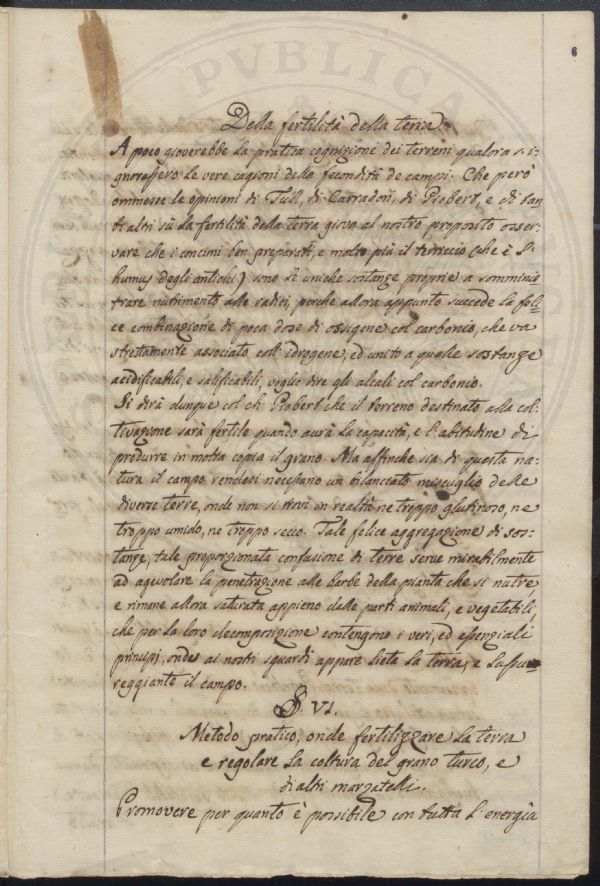 6
Della fertilità della terra.
A poco gioverebbe la pratica cognizione dei terreni qualora s'i-
gnorassero le vere cagioni della fecondità de campi. Che però
ommesse le opinioni di Tull, di Carradori, di Piobert, e di tan
ti altri sù la fertilità della terra giova al nostro proposito osser-
vare che i concimi ben preparati, e molto più il terriccio (che è l'
humus degli antichi) sono le uniche sostanze proprie a sommini-
trare nutrimento alle radici, poiche allora appunto succede la feli-
ce combinazione di poca dose di ossigene col carbonio, che va
strettamente associato coll'idrogene, ed unito a quelle sostanze
acidificabili, e salificabili, voglio dire gli alcali col carbonio.
Si dirà dunque col ch: Piobert che il terreno destinato alla col-
tivazione sarà fertile quando avrà la capacità, e l'abitudine di
produrre in molta copia il grano. Ma affinche sia di questa na-
tura il campo rendesi necessario un bilanciato miscuglio delle
diverse terre, onde non si trovi in realtà ne troppo glutinoso, ne
troppo umido, ne troppo secco. Tale felice aggregazione di sos-
tanze, tale proporzionata confusione di terre serve mirabilmente
ad agevolare la penetrazione alle barbe della pianta che si nutre,
e rimane allora saturata appieno dalle parti animali, e vegetabili,
che per la loro decomposizione contengono i veri, ed essenziali
principj, onde ai nostri sguardi appare lieta la terra, e lussu-
reggiante il campo.
§. VI.
Metodo pratico, onde fertilizzare la terra
e regolare la coltura del grano turco, e
di altri marzatelli.
Promovere per quanto è possibile con tutta l'energia
PVBLICA